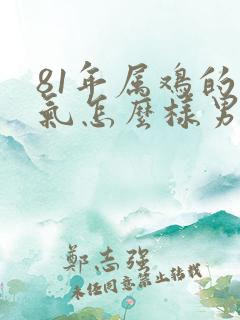 81年属鸡的
氣怎麼樣男
鄭志强
未经同意禁止转载